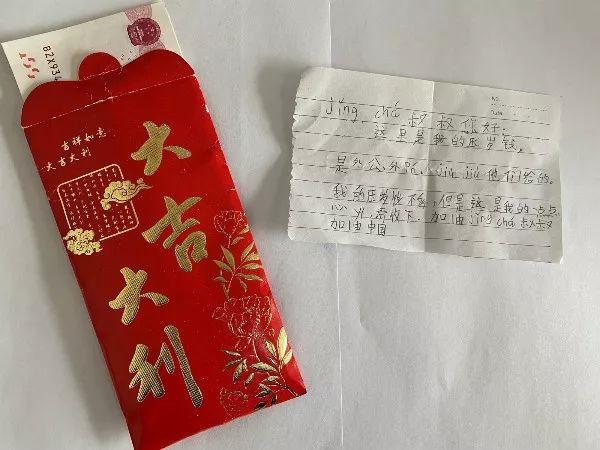 B2X934
吉祥如意
大吉大利
大吉大利
NO.
jǐng chá 叔叔你好:
这里是我的压岁钱,
是外公,外婆,jiù jiu 他们给的。
我的压岁钱不多,但是这是我的一点点
心意,请收下,加油jǐng chá 叔叔
加油中国